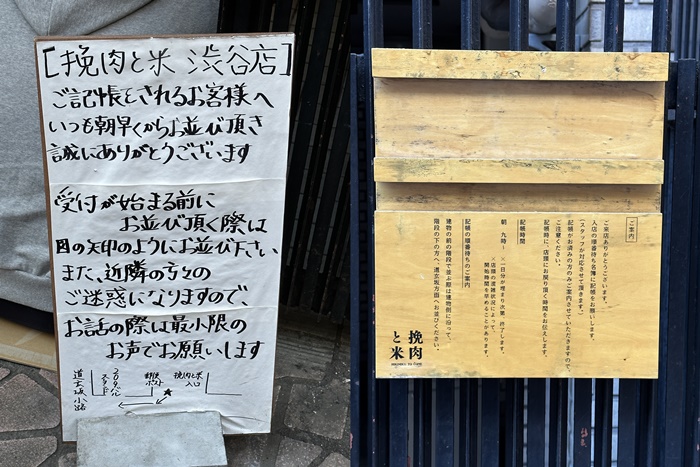 [挽肉と米 渋谷店]
ご記帳をされるお客様へ
いつも朝早くからお並び頂き
誠にありがとうございます
受付が始まる前に
お並び頂く際は
図の矢印のようにお並び下さい
また、近隣の方々の
ご迷惑になりますので、
お話の際は最小限の
お声でお願いします
道玄坂小路
郵便ポスト
挽肉と米
入口
ご案内
ご来店ありがとうございます。
入店の順番待ち名簿に記帳をお願いします。
(スタッフが対応させて頂きます)
記帳がお済みの方のみご案内させていただきますので、
ご注意ください。
記帳時に、店頭にお戻り頂く時間をお伝えします。
記帳時間
朝 九時〜 ×一日分が埋まり次第、終了します。
×店頭の混雑状況によって、
開始時間を早めることがあります。
記帳の順番待ちのご案内
建物の前の階段で並ぶ際は建物側に沿って、
階段の下の方へ、道玄坂方面へお並びください。
挽肉
と米